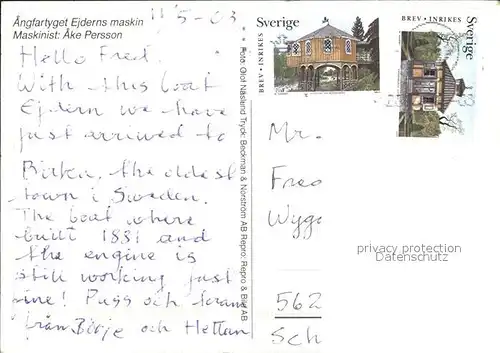 Ångfartyget Ejderns maskin
Maskinist: Åke Persson
11/5-03
Hello Fred.
With this boat
Ejdern we have
just arrived to
Birka, the oldest
town i Sweden.
The boat where
built 1881 and
the engine is
still working just
fine! Puss och kram
från Börje och Hettan
Foto: Olof Näslund Tryck: Beckman & Norström AB Repro: Repro & Bild AB
Sverige
BREV • INRIKES
BREV • INRIKES
Sverige
Mr.
Fred
Wyg
562
Sch
privacy protection
Datenschutz